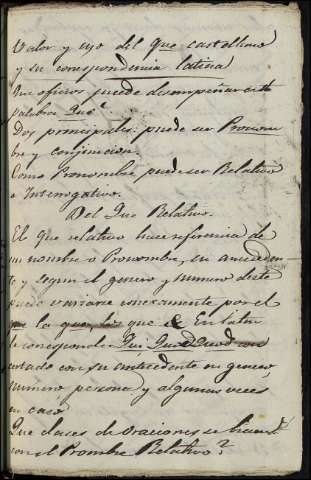 Valor y uso del que castellano
y su correspondencia latina
Que oficios puede desempeñar esta
palabra Que?
Dos principales: puede ser Pronom
bre y conjuncion.
Como Pronombre puede ser Relativo
e Interrogativo.
Del Que Relativo.
El Que relativo hace referencia de
un nombre o Pronombre, su anteceden
te y segun el genero y numero de este
puede variarse conexamente por el
que la que, los que & En latin
le corresponde Qui, Quae, Quod con
certado con su antecedente en genero
numero persona y algunas veces
en caso
Que clases de oraciones se hacen
con el Prombre Relativo?